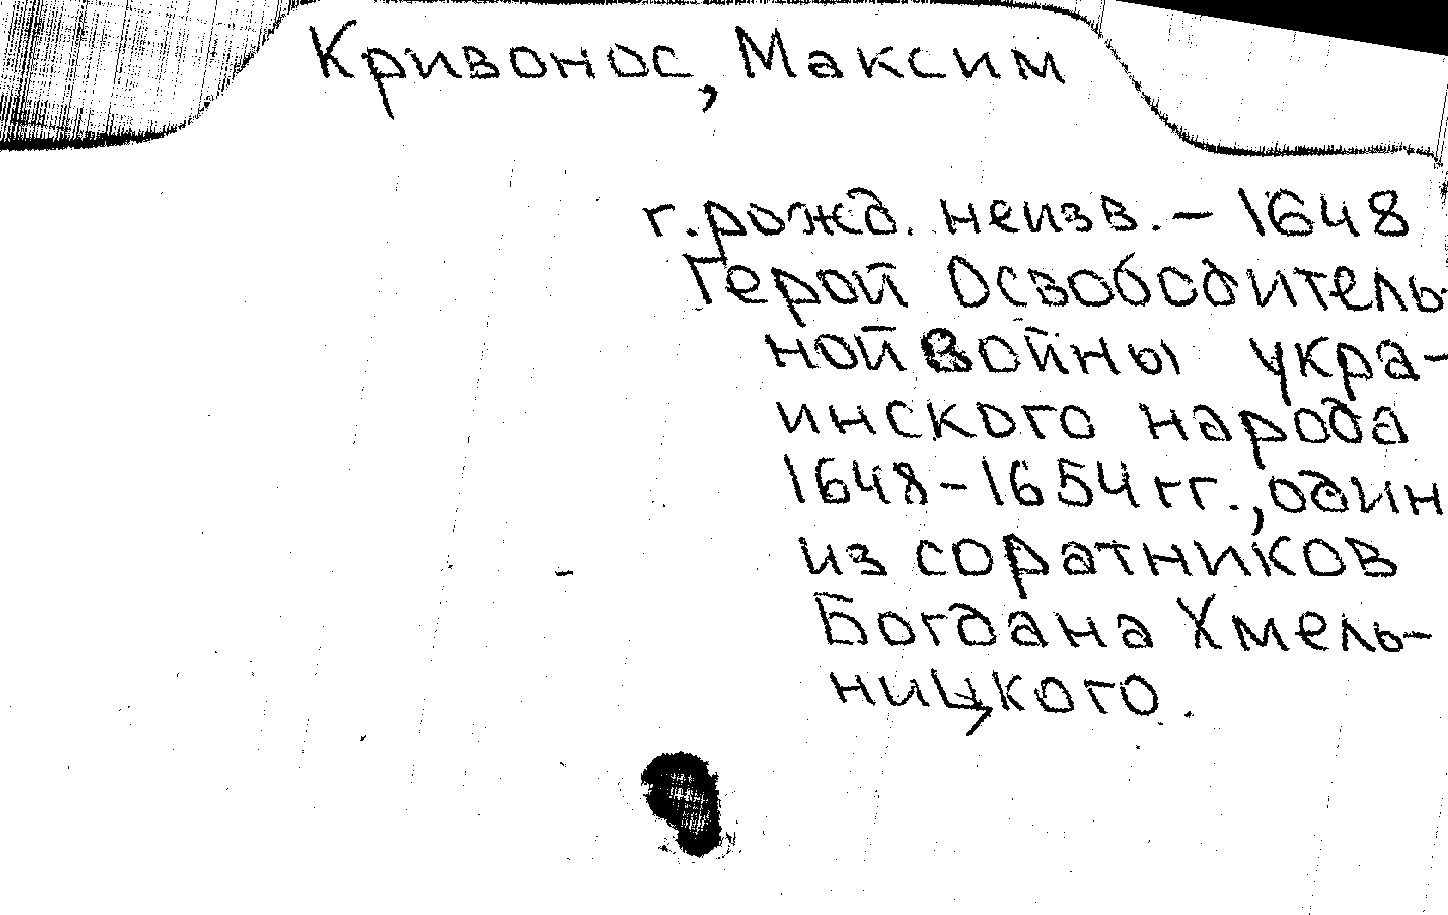 Кривонос, Максим
г. рожд. неизв. – 1648
Герой Освободитель-
ной войны укра-
инского народа
1648-1654 гг., один
из соратников
Богдана Хмель-
ницкого.